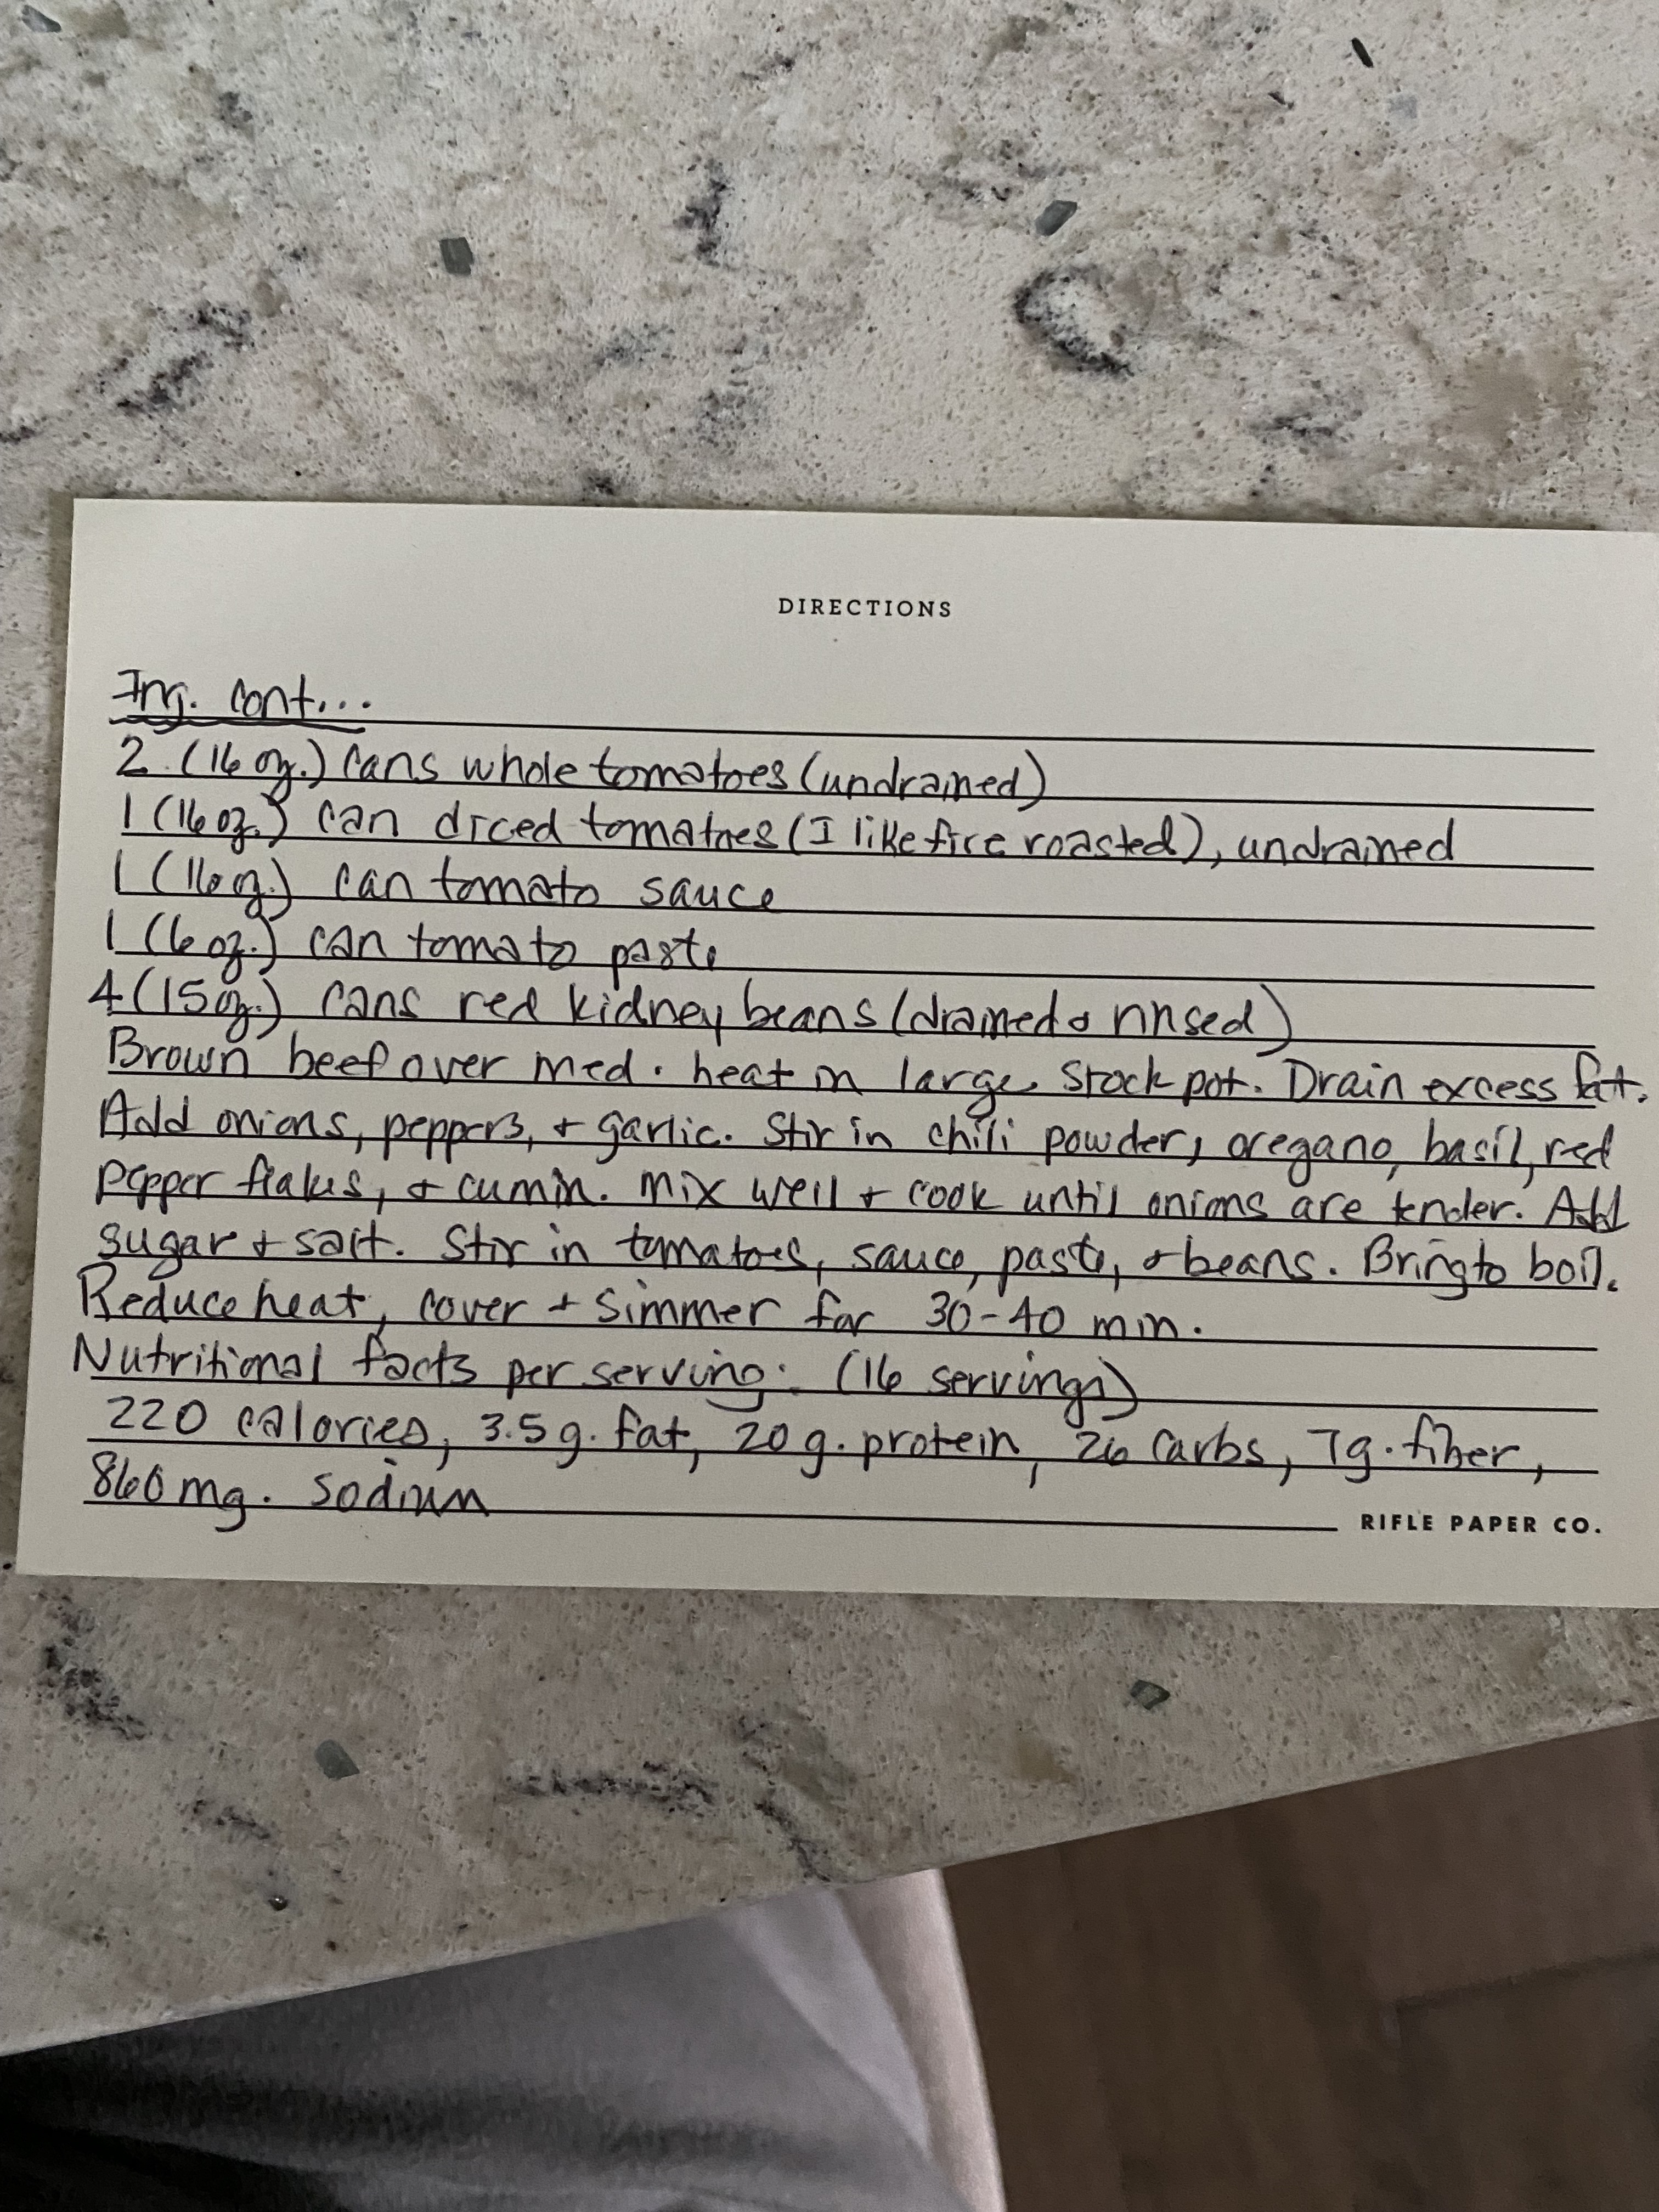 DIRECTIONS
Ing. cont...
2 (16 oz.) cans whole tomatoes (undrained)
1 (16 oz.) can diced tomatoes (I like fire roasted), undrained
1 (16 oz.) can tomato sauce
1 (6 oz.) can tomato paste
4 (15 oz.) cans red kidney beans (drained & rinsed)
Brown beef over med. heat in large stock pot. Drain excess fat.
Add onions, peppers, + garlic. Stir in chili powder, oregano, basil, red
pepper flakes, & cumin. Mix well + cook until onions are tender. Add
sugar + salt. Stir in tomatoes, sauce, paste, & beans. Bring to boil.
Reduce heat, cover + simmer for 30-40 min.
Nutritional facts per serving: (16 servings)
220 calories, 3.5 g. fat, 20 g. protein, 26 carbs, 7g. fiber,
860 mg. sodium
RIFLE PAPER CO.